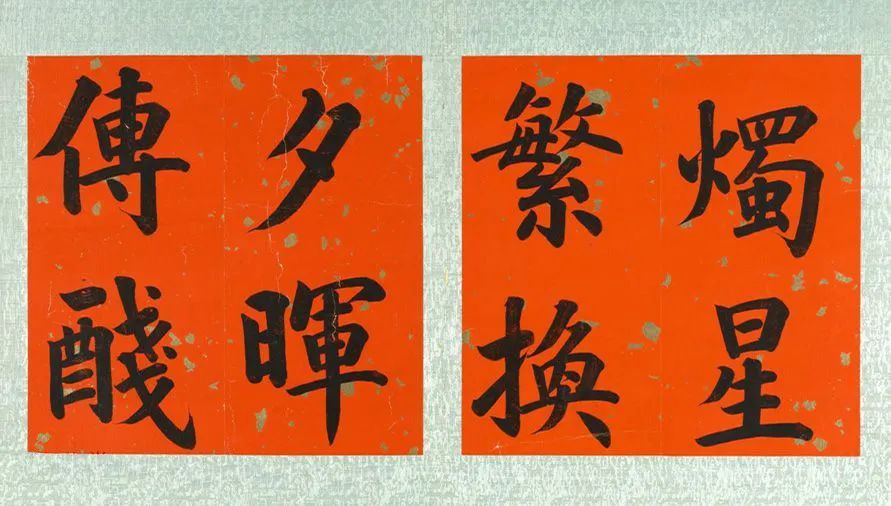 燭星
繁換
夕暉
傳醆